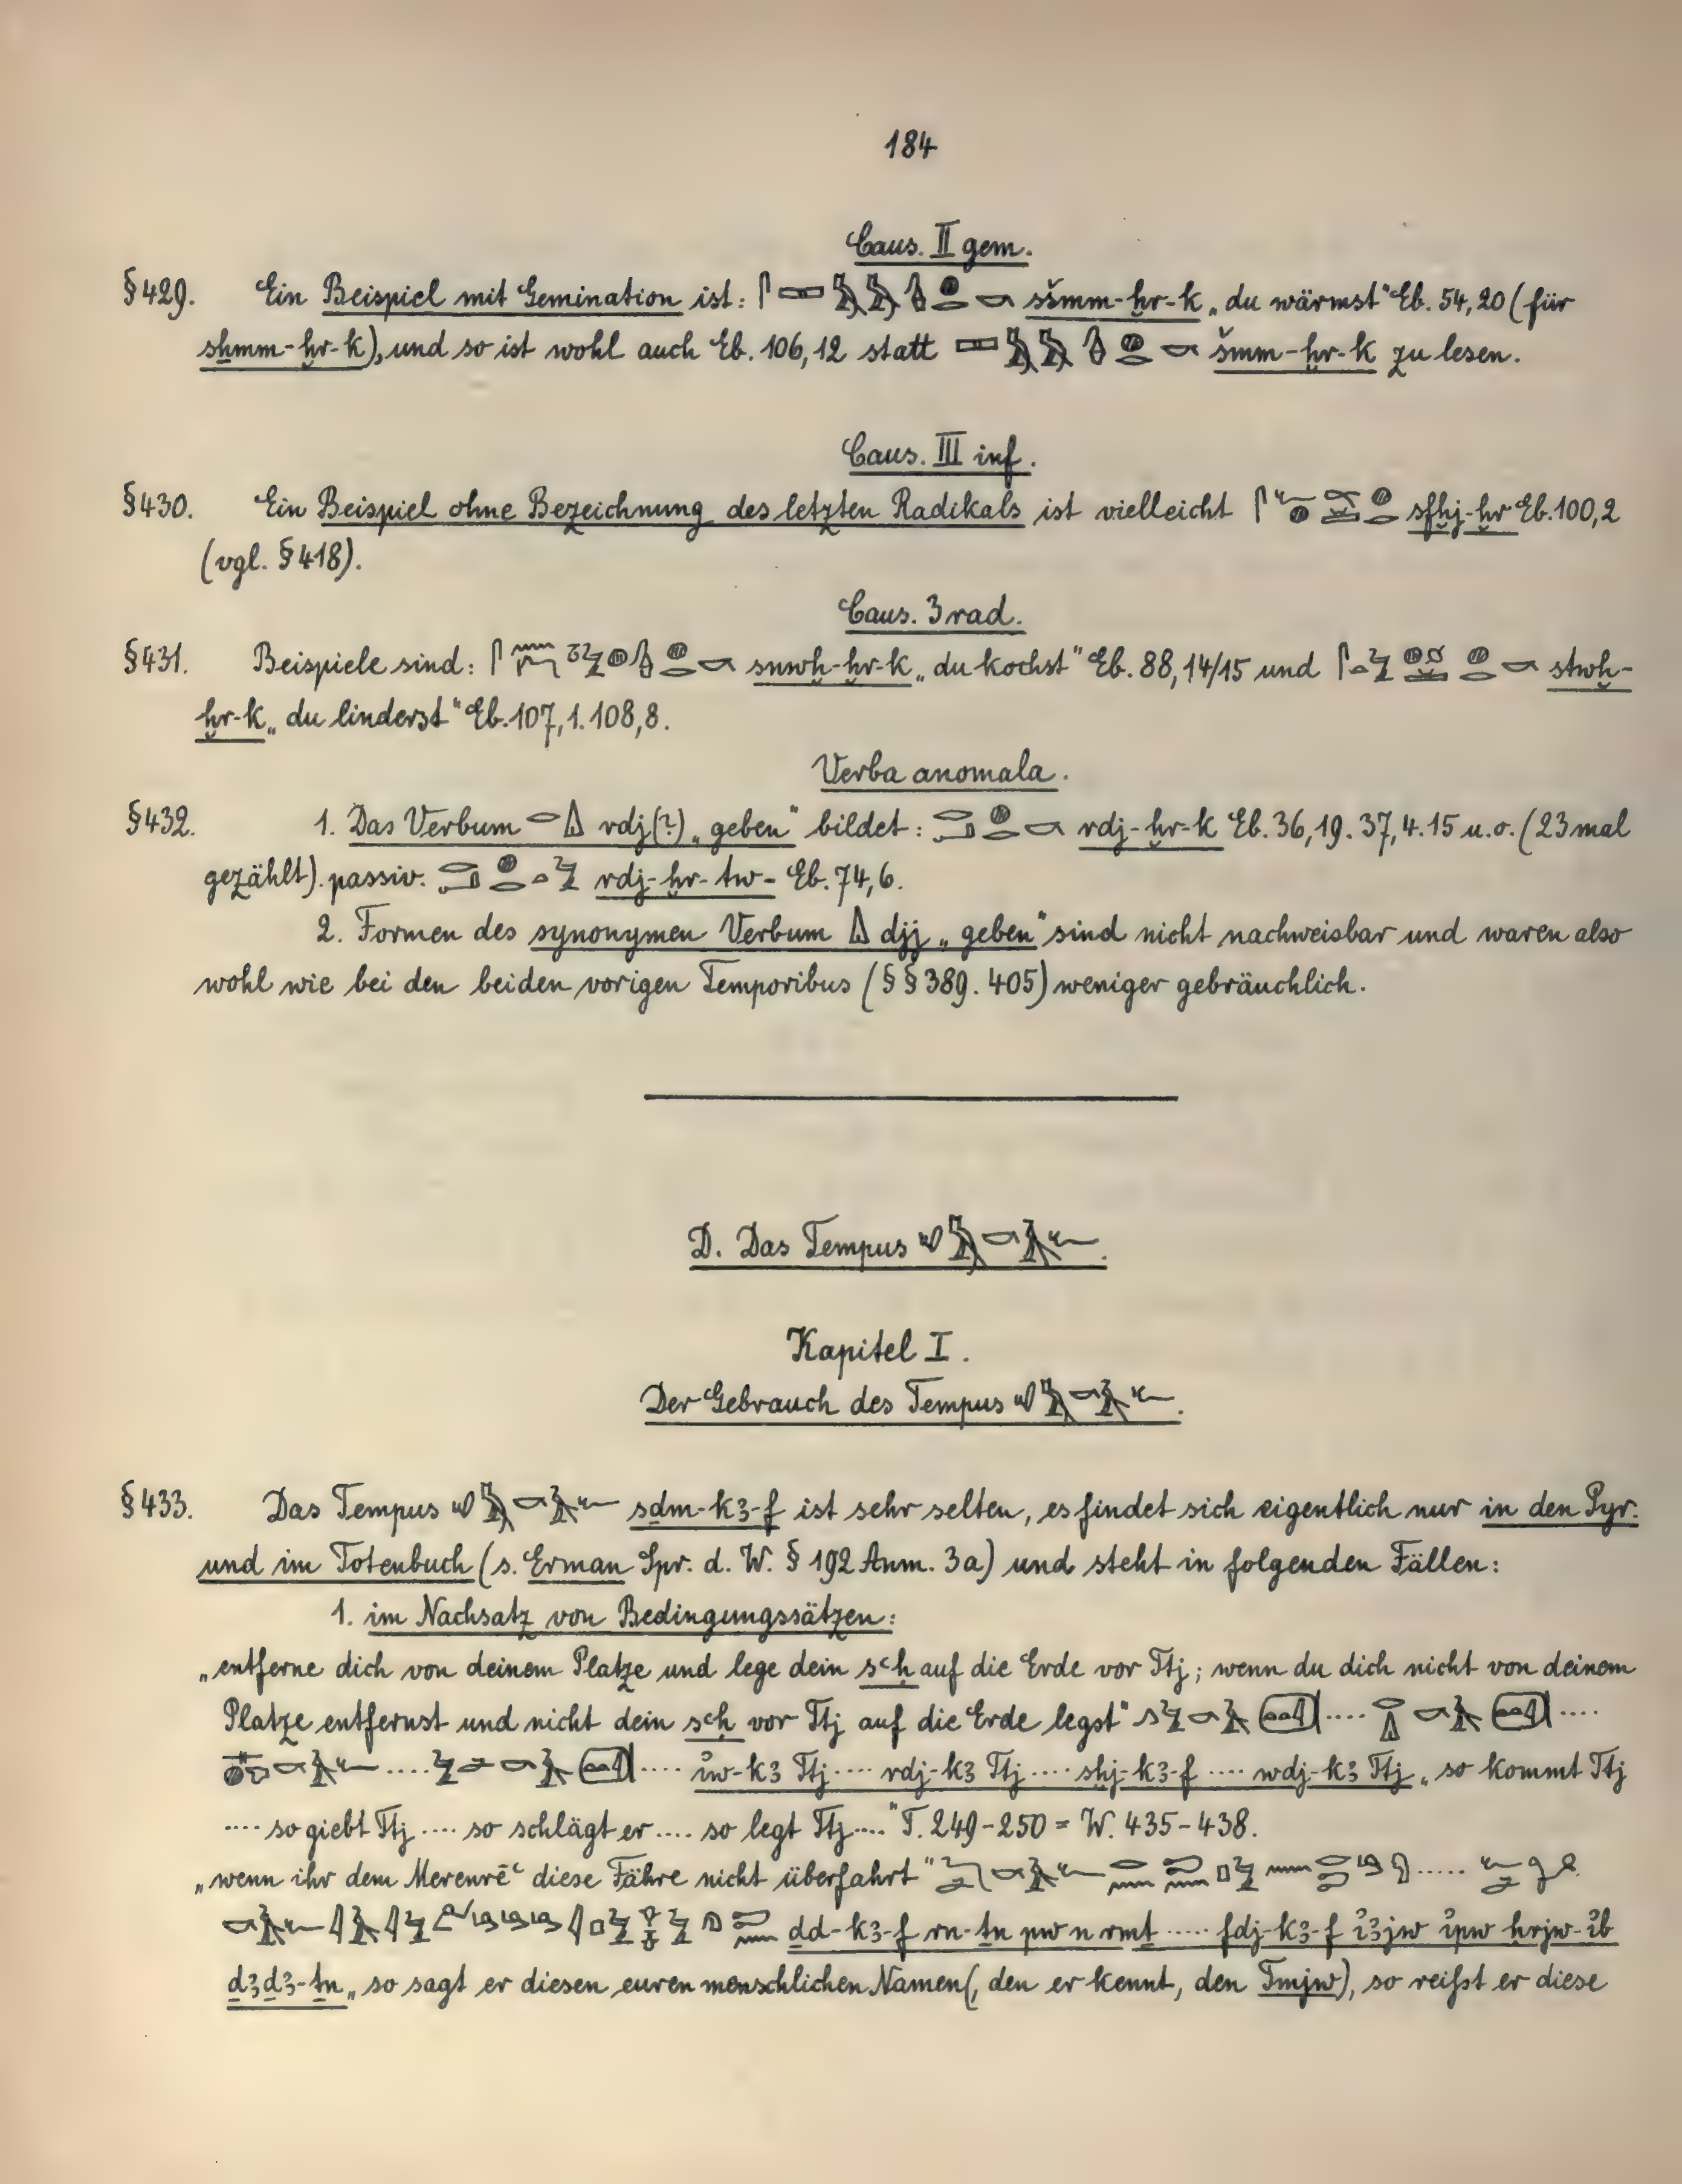 184
Caus. II gem.
§ 429. Ein Beispiel mit Gemination ist: sšmm-ḫr-k „du wärmst" Eb. 54,20 (für
sẖmm-ḫr-k), und so ist wohl auch Eb. 106,12 statt šmm-ḫr-k zu lesen.
Caus. III inf.
§ 430. Ein Beispiel ohne Bezeichnung des letzten Radikals ist vielleicht sfḫj-ḫr Eb. 100,2
(vgl. § 418).
Caus. 3 rad.
§ 431. Beispiele sind: snwḫ-ḫr-k „du kochst" Eb. 88,14/15 und stwḫ-
ḫr-k „du linderst" Eb. 107,1. 108,8.
Verba anomala.
§ 432. 1. Das Verbum rdj(?) „geben" bildet: rdj-ḫr-k Eb. 36,19. 37,4.15 u.o. (23 mal
gezählt). passiv. rdj-ḫr-tw- Eb. 74,6.
2. Formen des synonymen Verbum djj „geben" sind nicht nachweisbar und waren also
wohl wie bei den beiden vorigen Temporibus (§ § 389. 405) weniger gebräuchlich.
D. Das Tempus
Kapitel I.
Der Gebrauch des Tempus
§ 433. Das Tempus sḏm-kꜣ-f ist sehr selten, es findet sich eigentlich nur in den Pyr.
und im Totenbuch (s. Erman Spr. d. W. § 192 Anm. 3a) und steht in folgenden Fällen:
1. im Nachsatz von Bedingungssätzen:
„entferne dich von deinem Platze und lege dein sꜥḥ auf die Erde vor Ttj; wenn du dich nicht von deinem
Platze entfernst und nicht dein sꜥḥ vor Ttj auf die Erde legst" .... ....
.... .... i҆w-kꜣ Ttj .... rdj-kꜣ Ttj .... sḫj-kꜣ-f .... wdj-kꜣ Ttj „so kommt Ttj
.... so giebt Ttj .... so schlägt er .... so legt Ttj ...." T. 249-250 = W. 435-438.
„wenn ihr dem Merenrēꜥ diese Fähre nicht überfahrt" .....
ḏd-kꜣ-f rn-ṯn pw n rmṯ ..... fdj-kꜣ-f i҆ꜣjw i҆pw ḥrjw-i҆b
ḏꜣḏꜣ-ṯn „so sagt er diesen euren menschlichen Namen (, den er kennt, den Tmjw), so reißt er diese